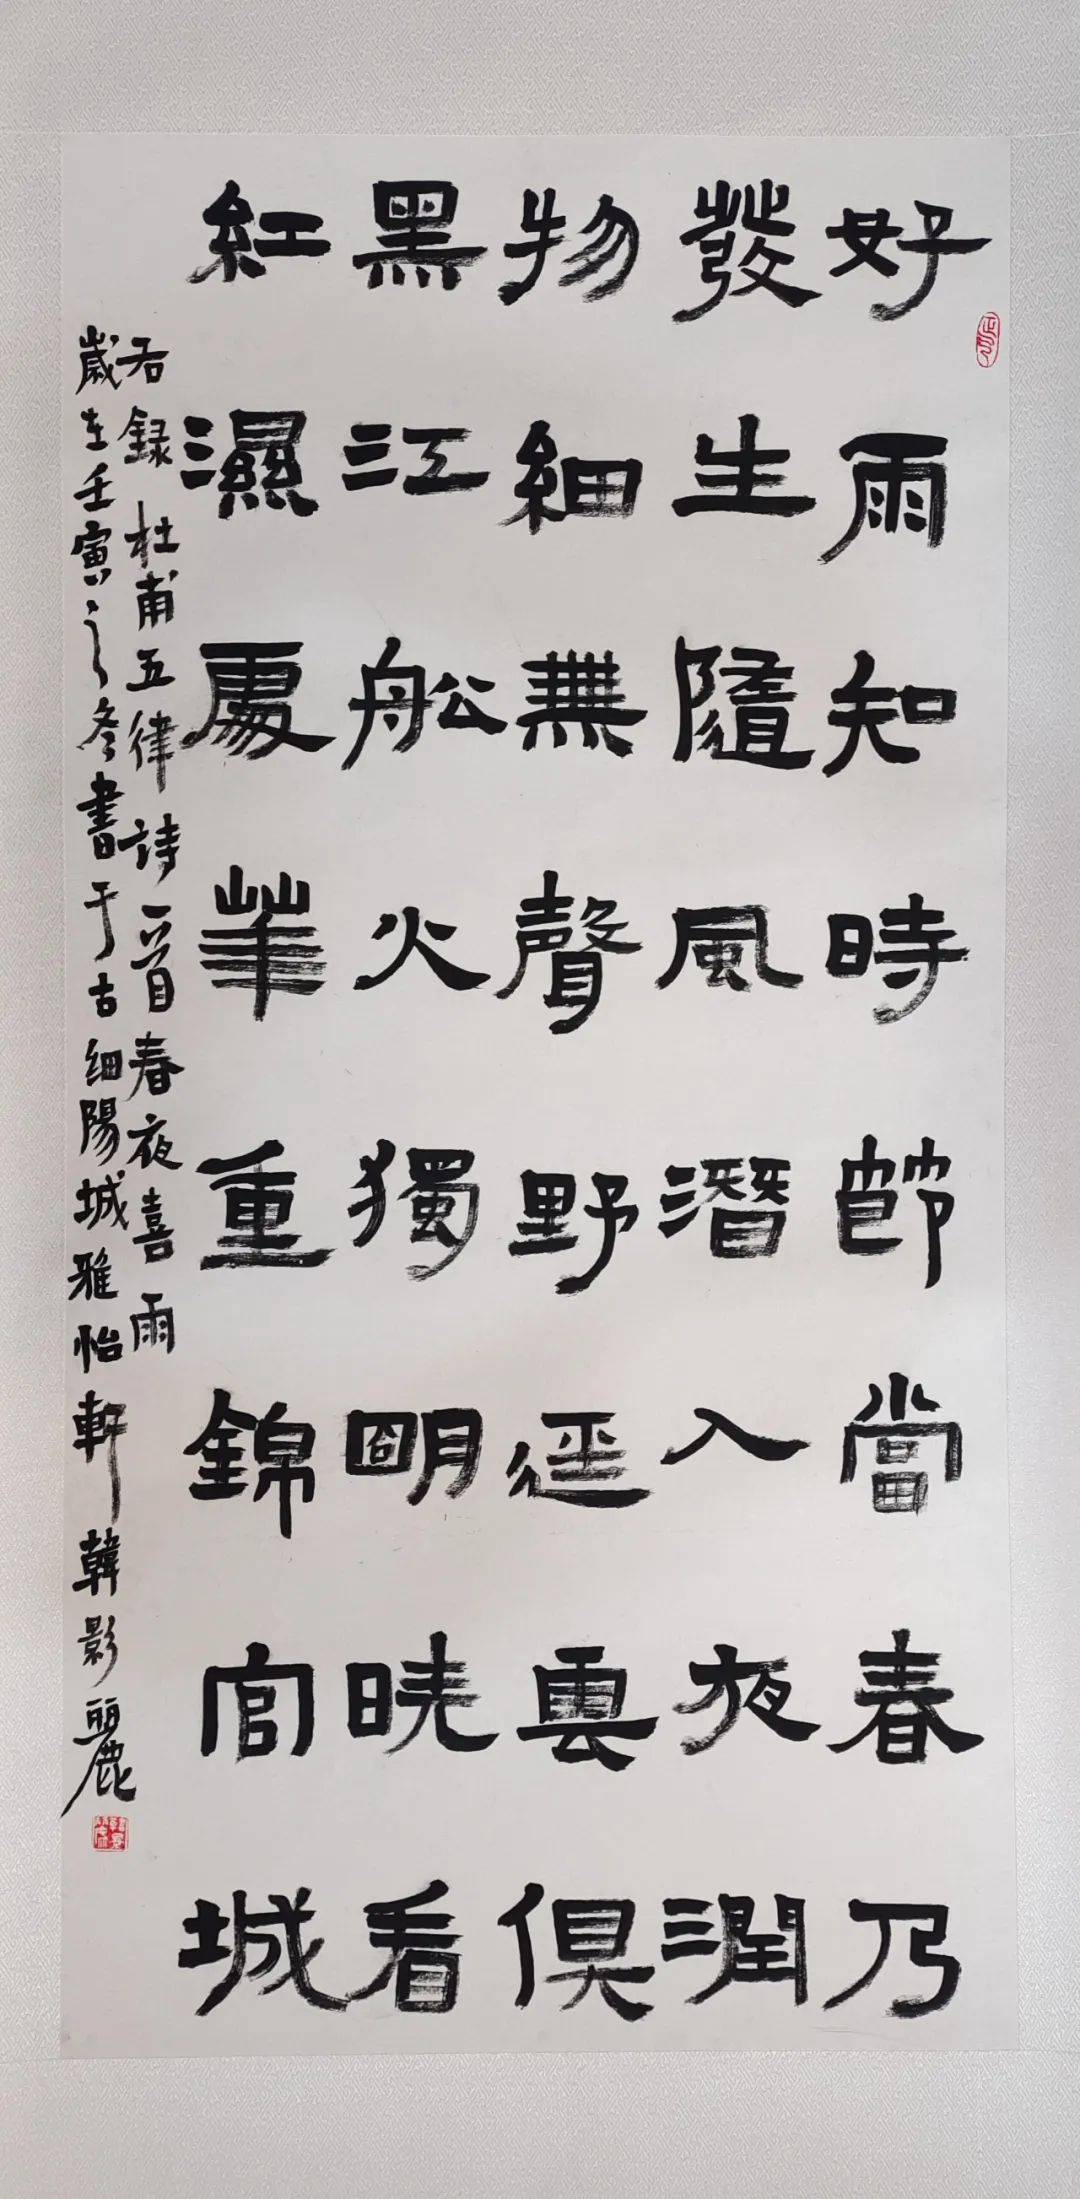 好雨知時節當春乃
發生隨風潛入夜潤
物細無聲野徑雲俱
黑江船火獨明曉看
紅濕處華重錦官城
右錄杜甫五律詩一首春夜喜雨
歲在壬寅之冬書于古细陽城雅怡軒韓影麗